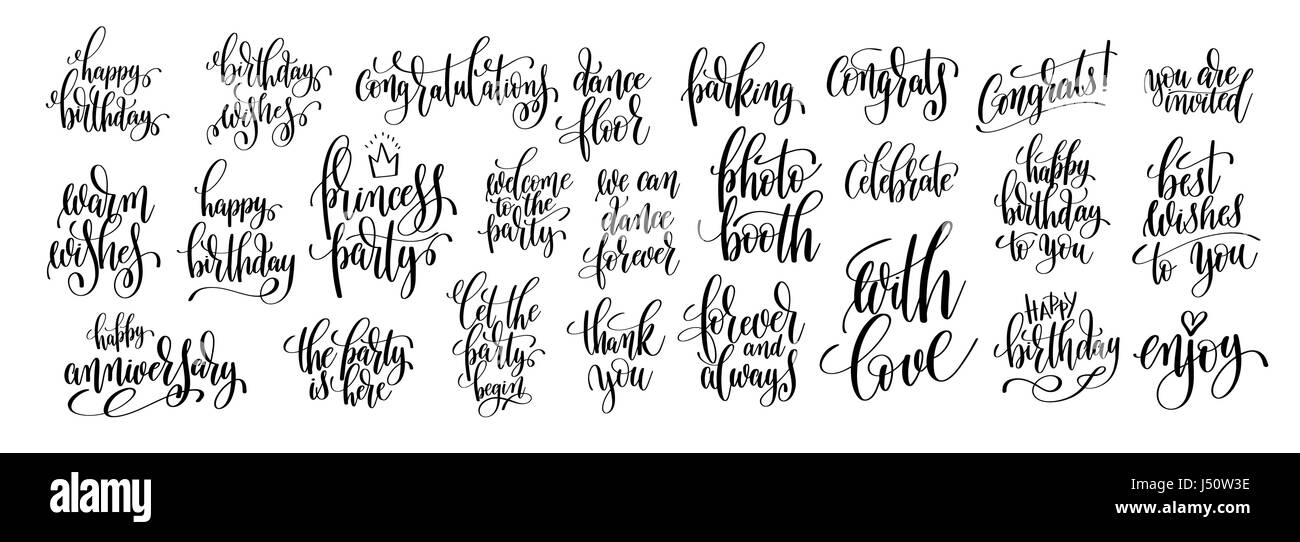 happy
birthday
birthday
wishes
congratulations
dance
floor
parking
Congrats
Congrats!
you are
invited
warm
wishes
happy
birthday
princess
party
welcome
to the
party
we can
dance
forever
photo
booth
Celebrate
happy
birthday
to you
best
wishes
to you
happy
anniversary
the party
is here
let the
party
begin
thank
you
forever
and
always
with
love
HAPPY
birthday
enjoy
alamy
Image ID: J50W3E
www.alamy.com